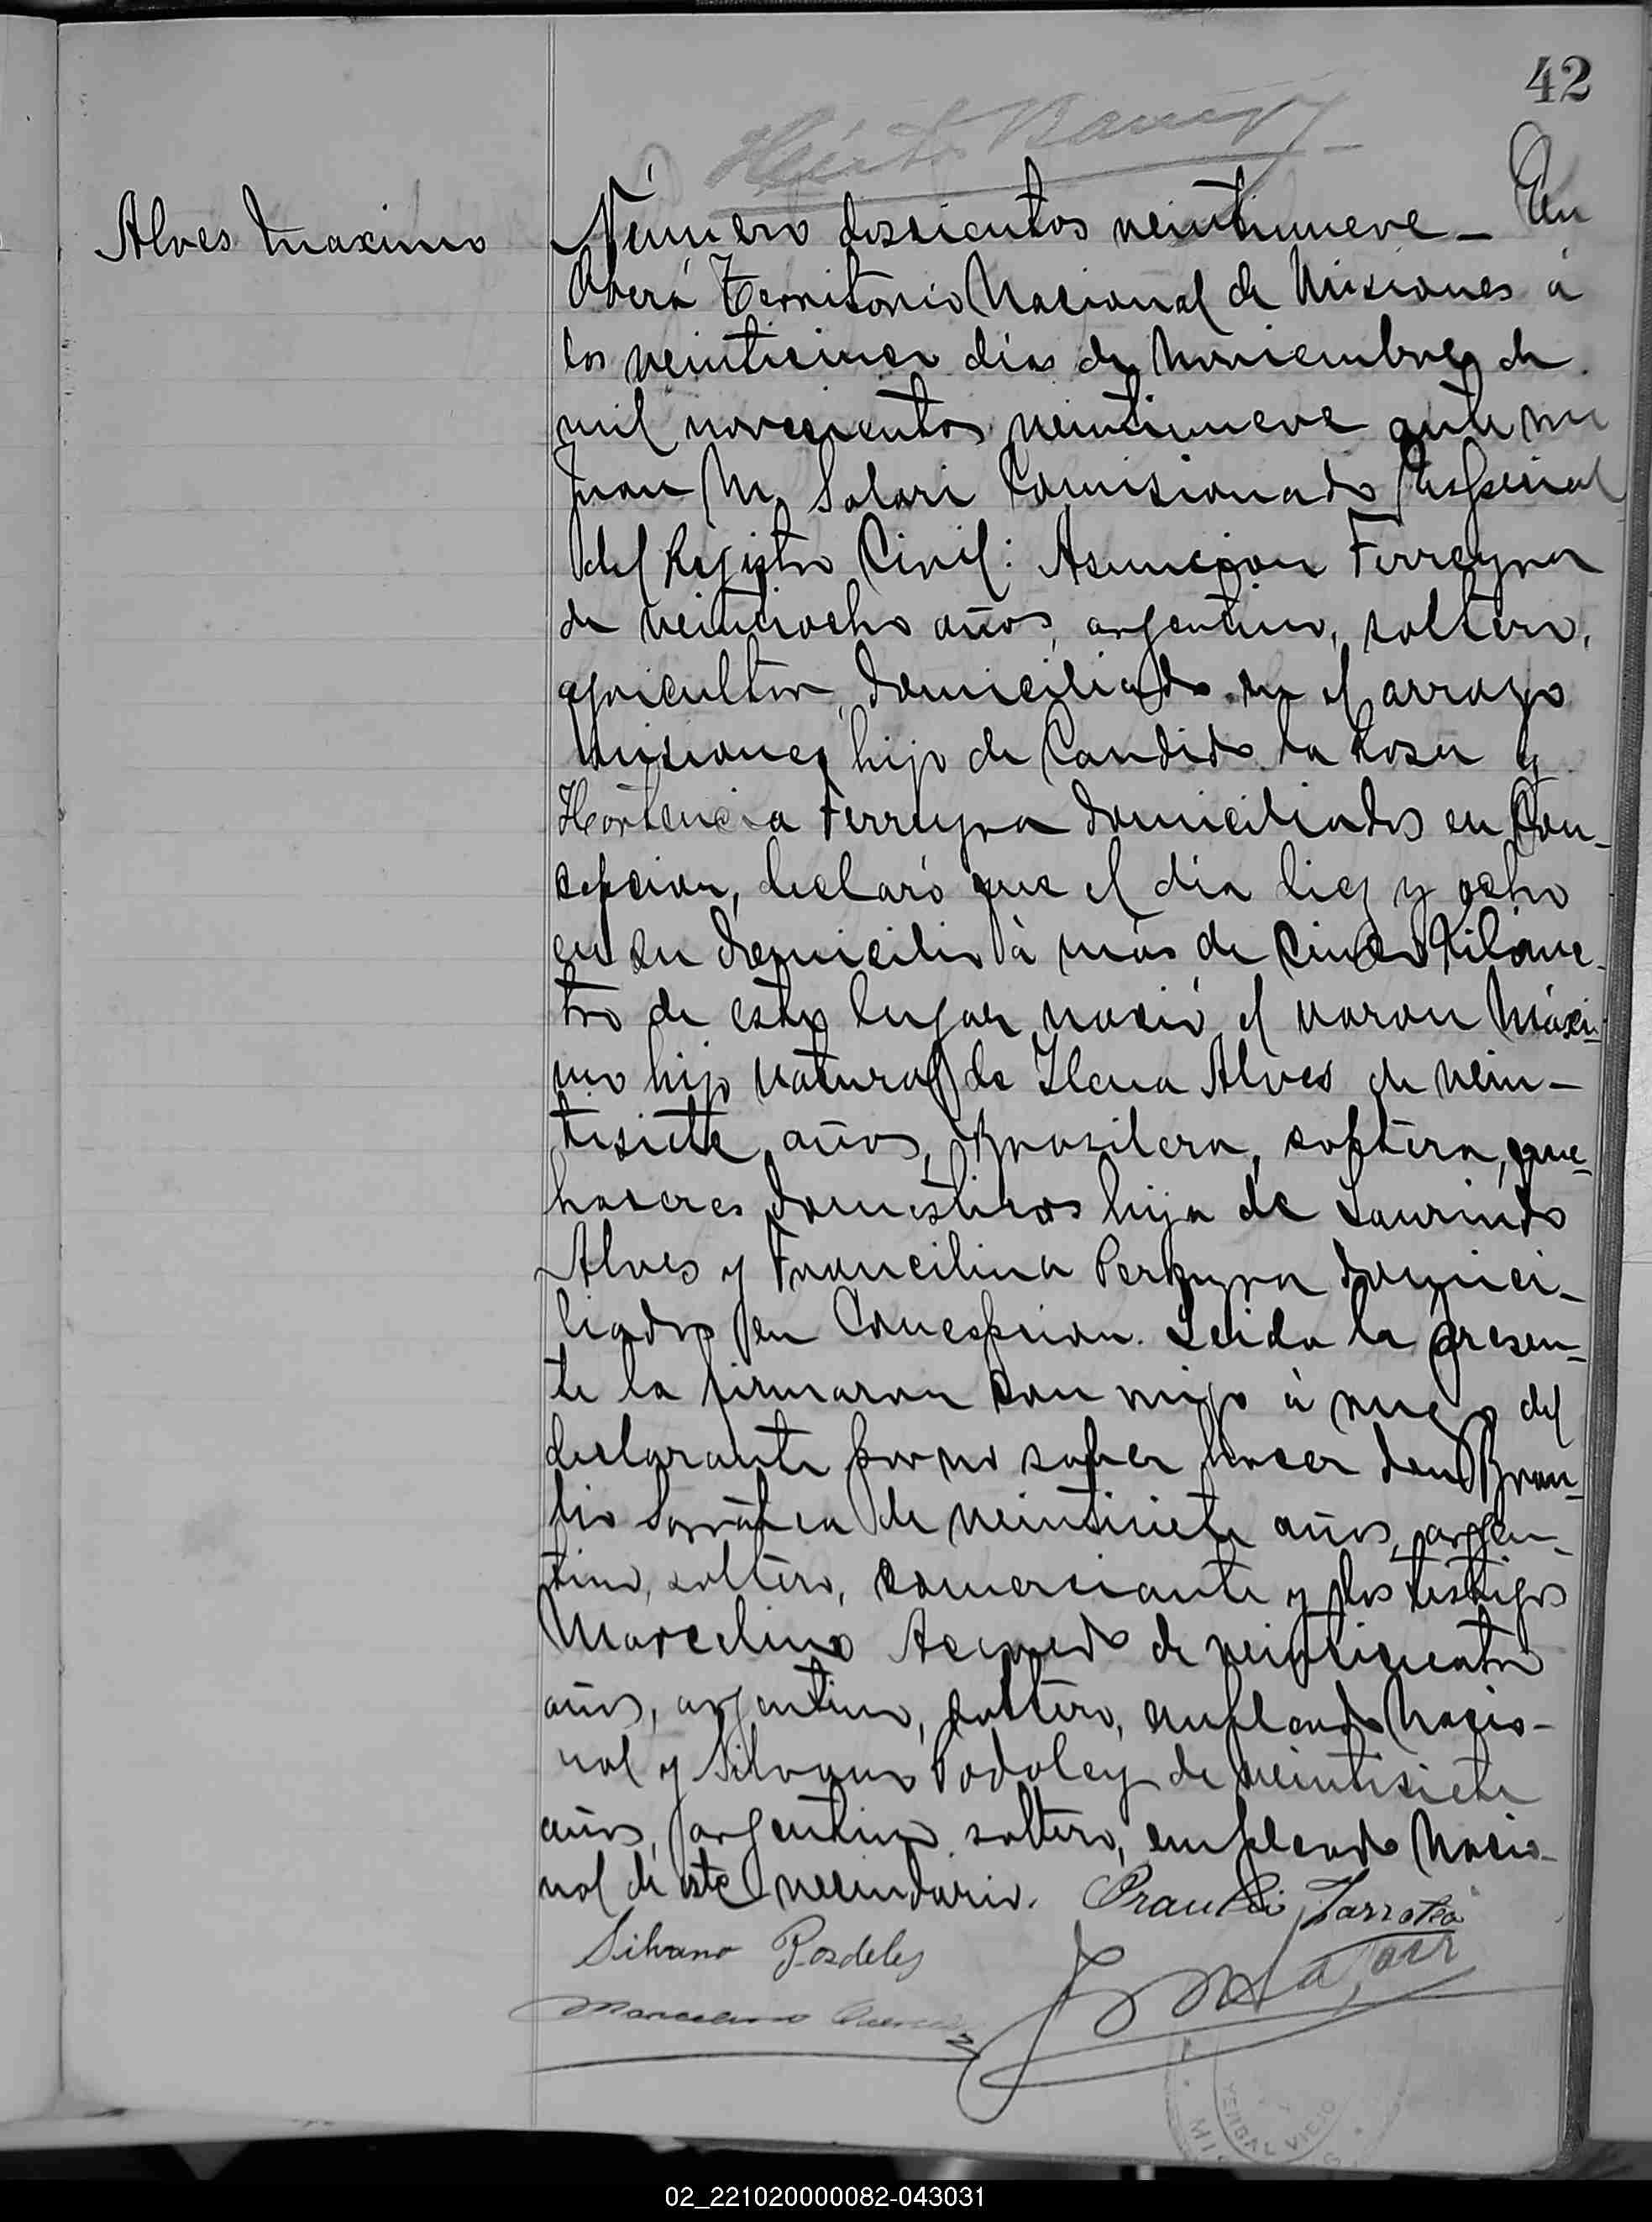 42
Alves Maximo
Número doscientos veintinueve _ En
Oberá Territorio Nacional de Misiones á
los veinticinco dias de Noviembre de
mil novecientos veintinueve ante mi
Juan M. Solari Comisionado Especial
del Registro Civil: Asuncion Ferreyra
de veintiocho años, argentino, soltero,
agricultor, domiciliado en el arroyo
Misiones hijo de Candido la Rosa y
Hortencia Ferreyra domiciliados en Con-
cepcion, declaró que el dia diez y ocho
en su domicilio à más de cinco Kilóme-
tro de este lugar nació el varon Máxi-
mo hijo natural de Ilena Alves de vein-
tisiete años, Brasilera, soltera, que-
haceres domésticos hija de Laurindo
Alves y Francilina Pereyra domici-
liados en Concepcion. Leida la presen-
te la firmaron con migo à ruego del
declarante por no saber hacer don Brau-
lio Sarratea de veintisiete años, argen-
tino, soltero, comerciante y los testigos
Marcelino Acevedo de veinticuatro
años, argentino, soltero, empleado Nacio-
nal y Silvano Podeley de veintisiete
años, argentino, soltero, empleado Nacio-
nal de este vecindario. Braulio Sarratea
Silvano Posdeley
Marcelino
YERBAL VIEJO
02_221020000082-043031